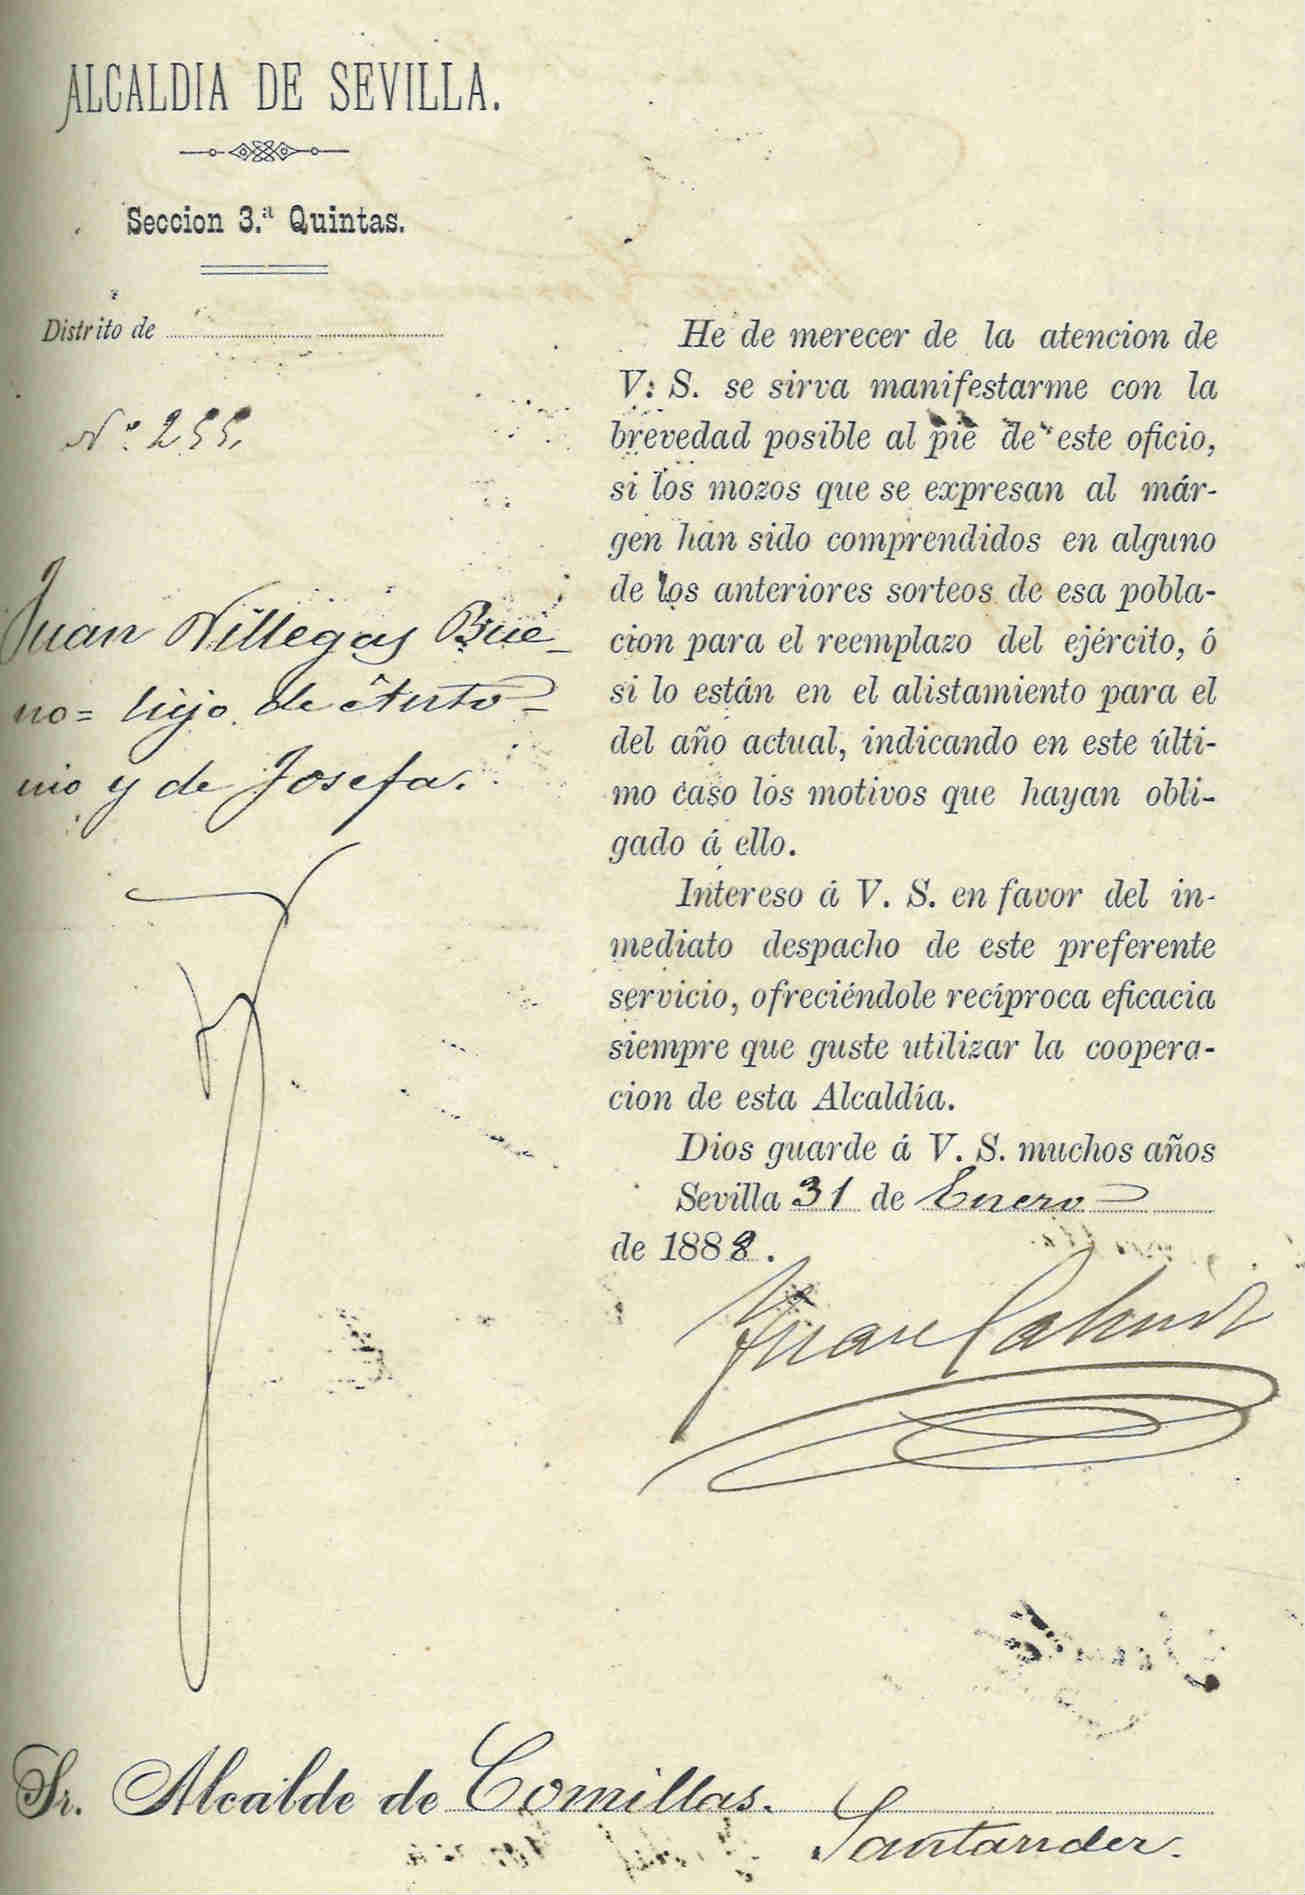 ALCALDIA DE SEVILLA.
Seccion 3.ª Quintas.
Distrito de
Nº 255,
Juan Villegas Bue-
no= hijo de Anto-
nio y de Josefa.
He de merecer de la atencion de
V. S. se sirva manifestarme con la
brevedad posible al pie de este oficio,
si los mozos que se expresan al már-
gen han sido comprendidos en alguno
de los anteriores sorteos de esa pobla-
cion para el reemplazo del ejército, ó
si lo están en el alistamiento para el
del año actual, indicando en este últi-
mo caso los motivos que hayan obli-
gado á ello.
Intereso á V. S. en favor del in-
mediato despacho de este preferente
servicio, ofreciéndole recíproca eficacia
siempre que guste utilizar la coopera-
cion de esta Alcaldía.
Dios guarde á V. S. muchos años
Sevilla 31 de Enero
de 1888.
Juan
Sr. Alcalde de Comillas.
Santander.